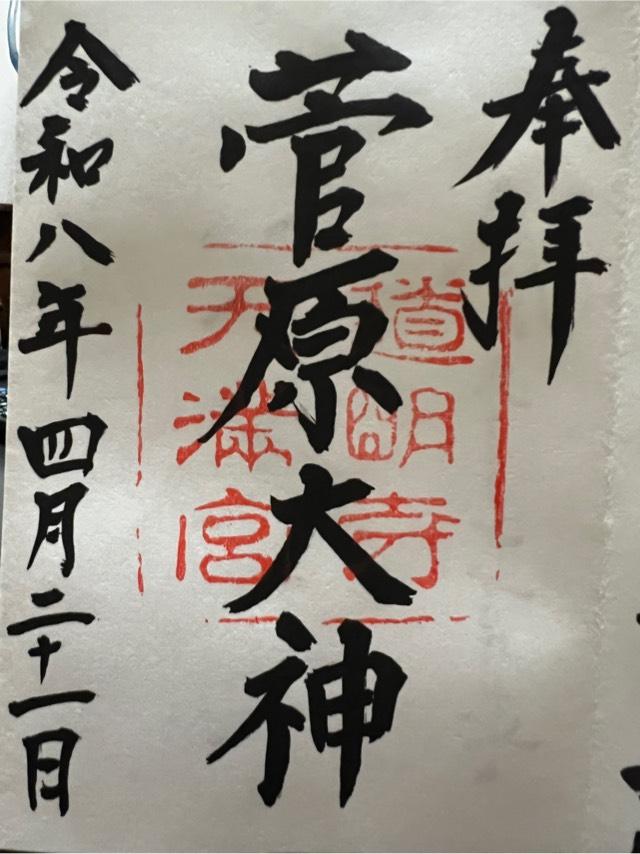 奉拝
菅原大神
道明寺
天満宮
令和八年四月二十一日